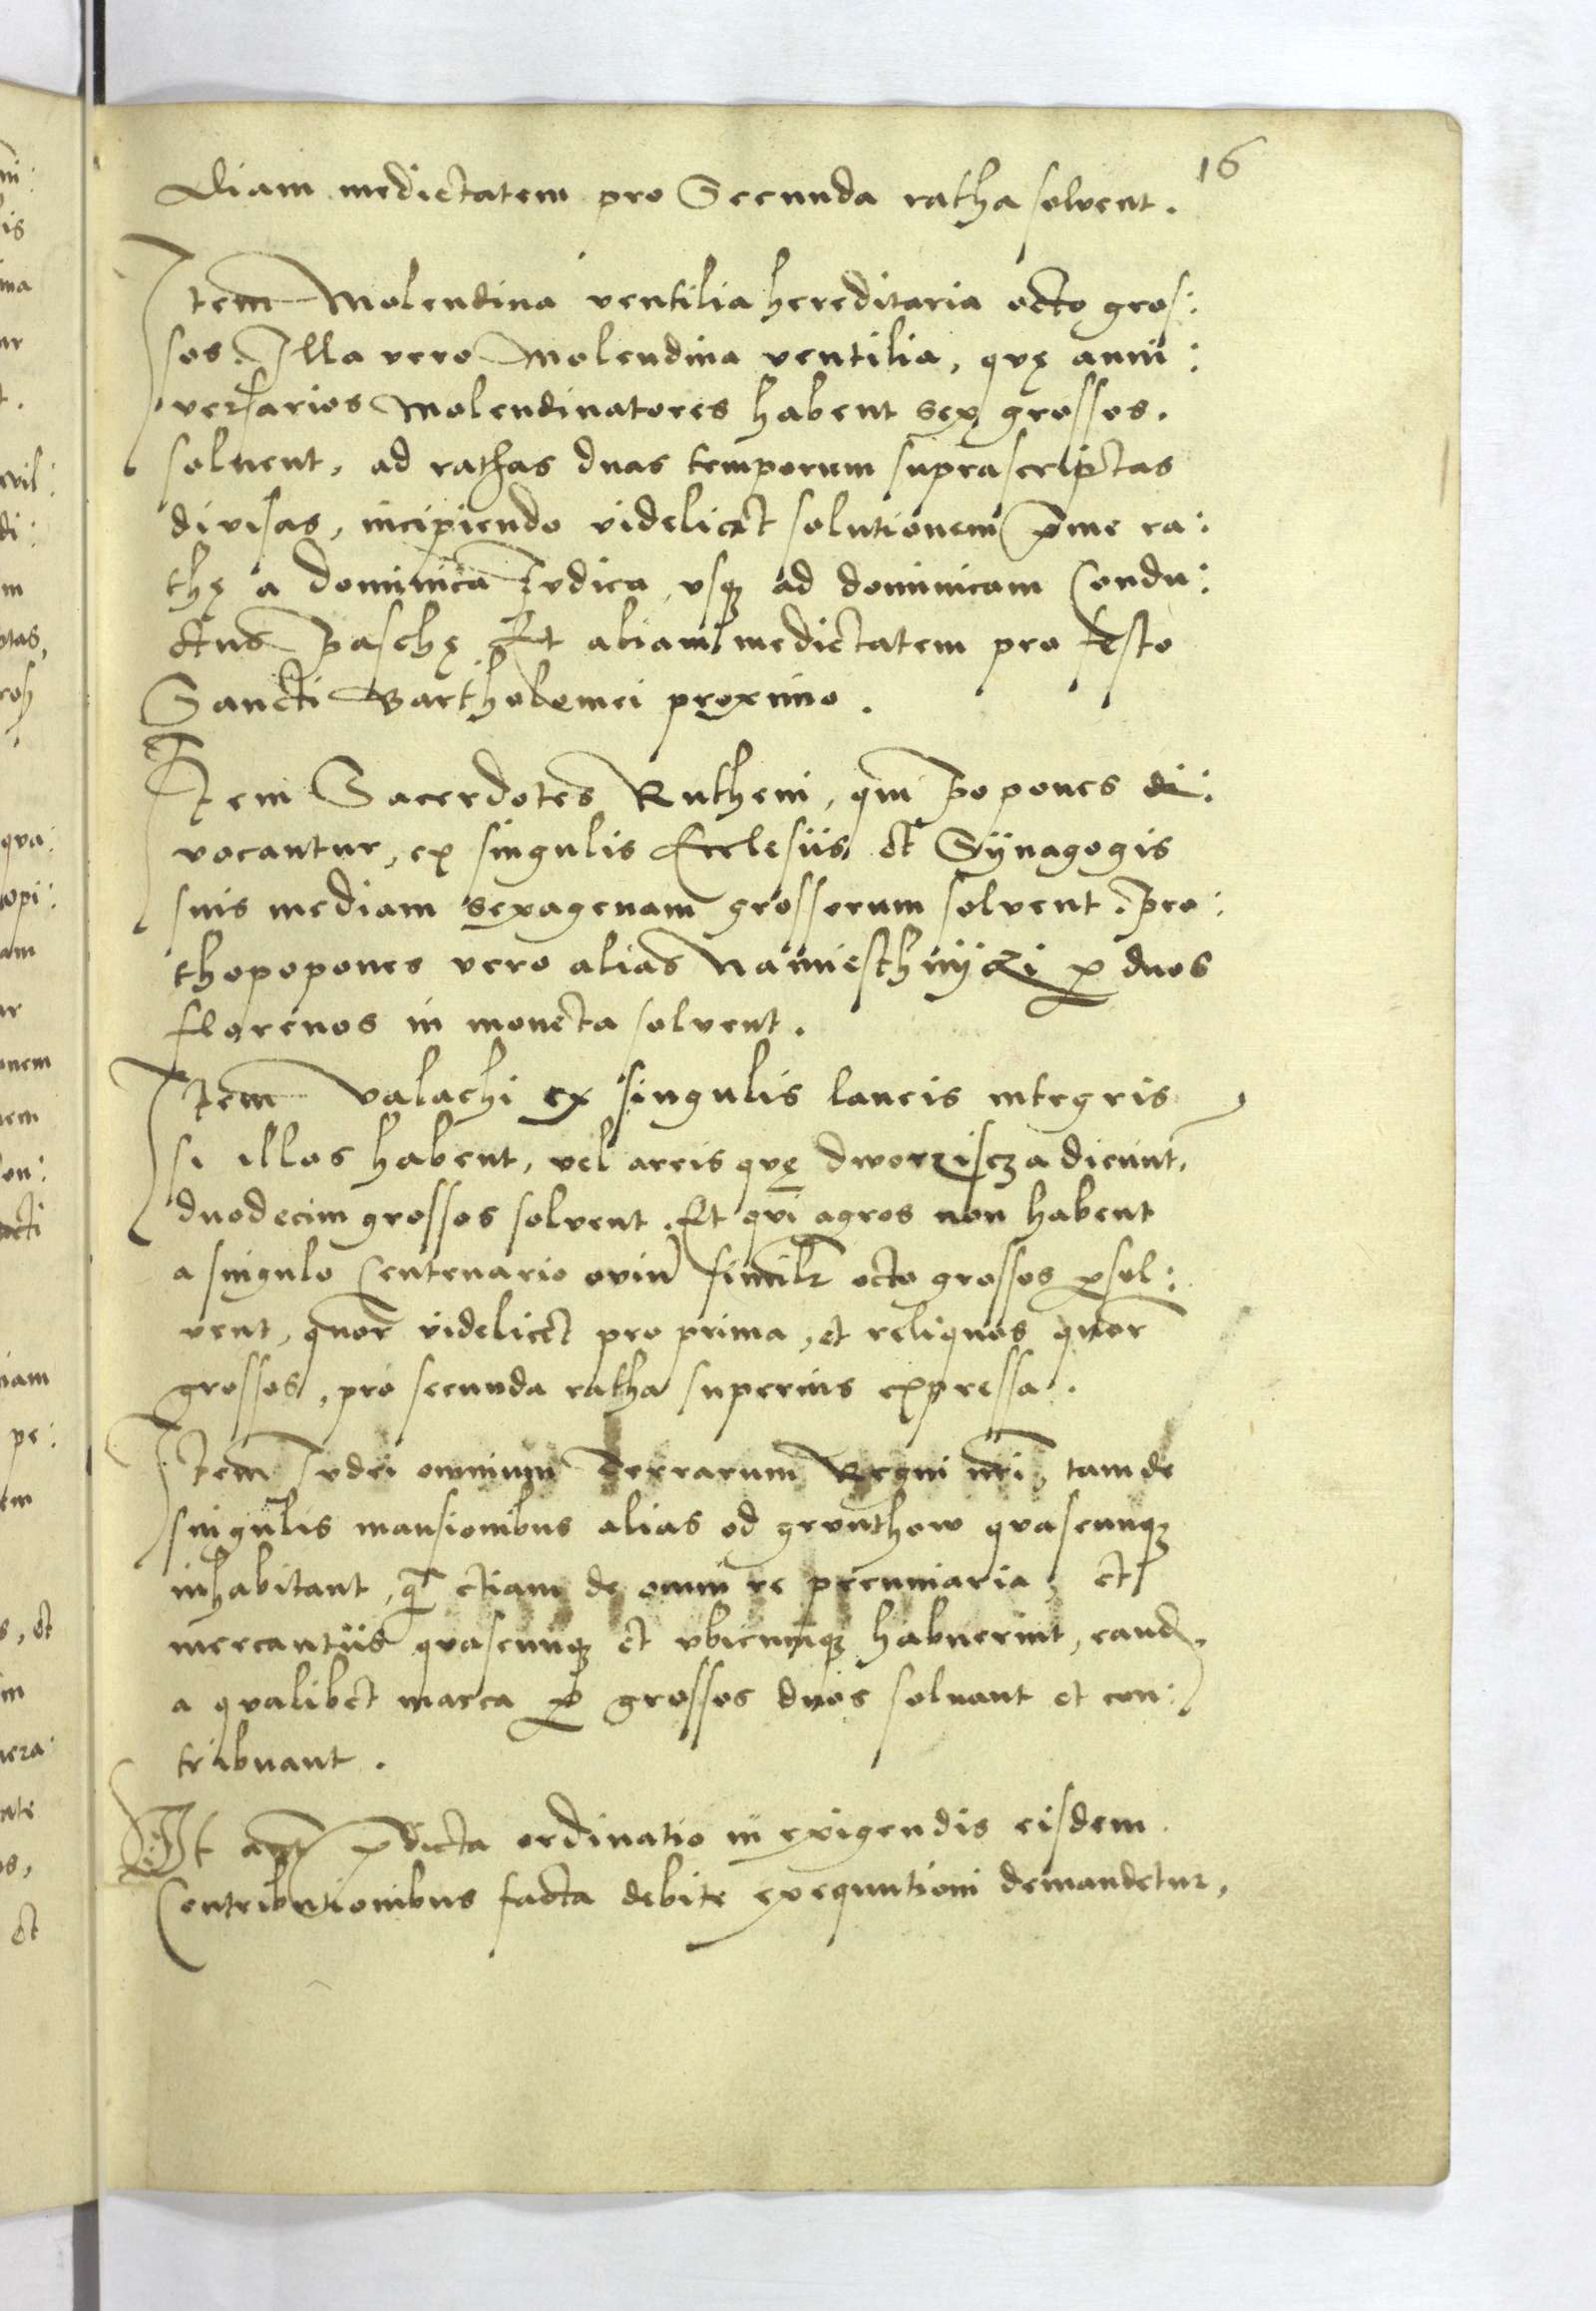 16
aliam medietatem pro Secunda ratha solvent.
Item Molendina ventilia hereditaria octo gros:
sos. Illa vero Molendina ventilia, quę anni:
versarios Molendinatores habent sex grossos.
soluent, ad rathas duas temporum suprascriptas
divisas, incipiendo videlicet solutionem p̄me ra:
thę a dominica Iudica, vsq; ad dominicam Condu:
ctus Paschę Et aliam medietatem pro festo
Sancti Bartholomei proximo.
Item Sacerdotes Rutheni, qui Popones di:
vocantur, ex singulis Ecclesiis et Synagogis
suis mediam sexagenam grossorum solvent. Pro:
thopopones vero alias Namiesthnijczi p duos
florenos in moneta solvent.
Item Valachi ex singulis laneis integris
si illos habent, vel areis quę dworziscza dicunt,
duodecim grossos solvent. Et qui agros non habent
a singulo Centenario oviu similr octo grossos psol:
vent, quor videlicet pro prima, et reliquos quor
grossos, pro secunda ratha superius expressa.
Item Iudei omnium Terrarum Regni nri, tam de
singulis mansionibus alias od grunthow quascunq;
inhabitant, q̄ etiam de omni re pecuniaria, et
mercantiis quascunq; et vbicunq; habuerint, eand.
a qualibet marca p grossos duos soluant et con:
tribuant.
Vt aut pdicta ordinatio in exigendis eisdem
Contributionibus facta debite exequutioni demandetur,